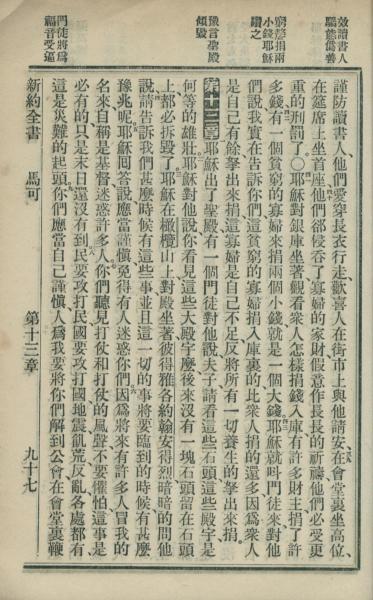 效讀書人
驕態僞善
窮嫠捐兩
小錢耶穌
讚之
豫言聖殿
傾毀
門徒將爲
福音受逼
謹防讀書人他們愛穿長衣行走歡喜人在街市上與他請安在會堂裏坐高位
在筵席上坐首座他們卻侵吞了寡婦的家財假意作長長的祈禱他們必受更
重的刑罰了〇耶穌對銀庫坐著觀看衆人怎樣捐錢入庫有許多財主捐了許
多錢有一個貧窮的寡婦來捐兩個小錢就是一個大錢耶穌就叫門徒來對他
們說我實在告訴你們這貧窮的寡婦捐入庫裏的比衆人捐的還多因爲衆人
是自己有餘拏出來捐這寡婦是自己不足反將所有一切養生的拏出來捐
第十三章耶穌出了聖殿有一個門徒對他說夫子請看這些石頭這些殿宇是
何等的雄壯耶穌對他說你看見這些大殿宇麼後來沒有一塊石頭留在石頭
上都必拆毀了耶穌在橄欖山上對殿坐著彼得雅各約翰安得烈暗暗的問他
說請告訴我們甚麼時候有這些事並且這一切的事將要臨到的時候有甚麼
豫兆呢耶穌囘答說應當謹慎免得有人迷惑你們因爲將來有許多人冒我的
名來自稱是基督迷惑許多人你們聽見打仗和打仗的風聲不要懼怕這事是
必有的只是末日還沒有到民要攻打民國要攻打國地震飢荒反亂各處都有
這是災難的起頭你們應當自己謹慎人爲我要將你們解到公會在會堂裏鞭
新約全書 馬可 第十三章 九十七